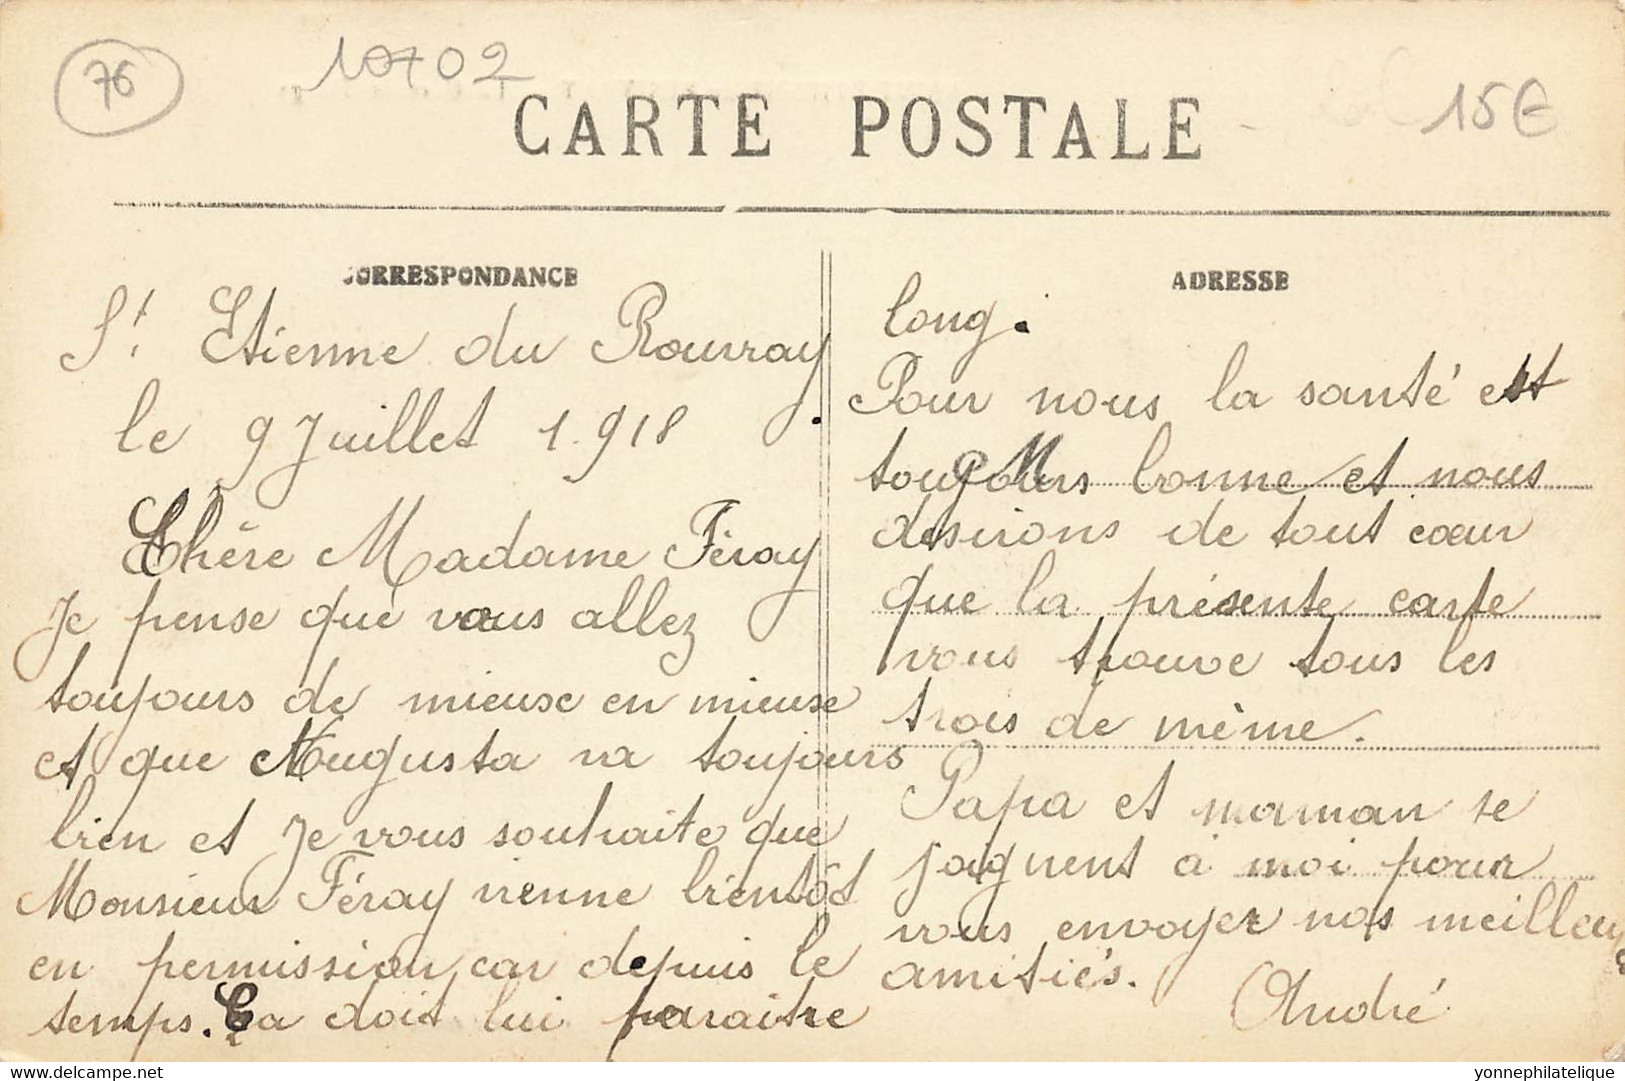 76
10702
15€
CARTE POSTALE
CORRESPONDANCE
St. Etienne du Rouvray
le 9 Juillet 1.918.
Chère Madame Féray
Je pense que vous allez
toujours de mieuse en mieuse
et que Augusta va toujours
bien et Je vous souhaite que
Monsieur Féray vienne bientôt
en permission, car depuis le
temps. Ça doit lui paraitre
ADRESSE
long.
Pour nous la santé est
toujours bonne et nous
desirons de tout cœur
que la présente carte
vous trouve tous les
trois de même.
Papa et maman se
joignent à moi pour
vous envoyer nos meilleurs
amitiés.
André
Delcampe.net
yonnephilatelique